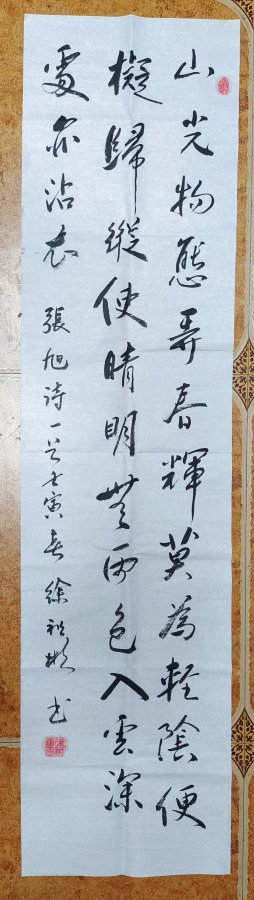 山光物態弄春輝莫為輕陰便
擬歸縱使晴明無雨色入雲深
處亦沾衣 張旭诗一首壬寅春 徐祖彬 书